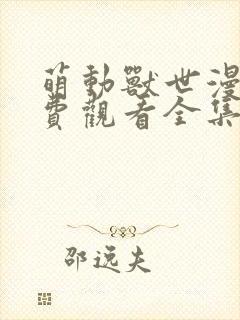 萌動獸世漫
費觀看全集
邵逸夫